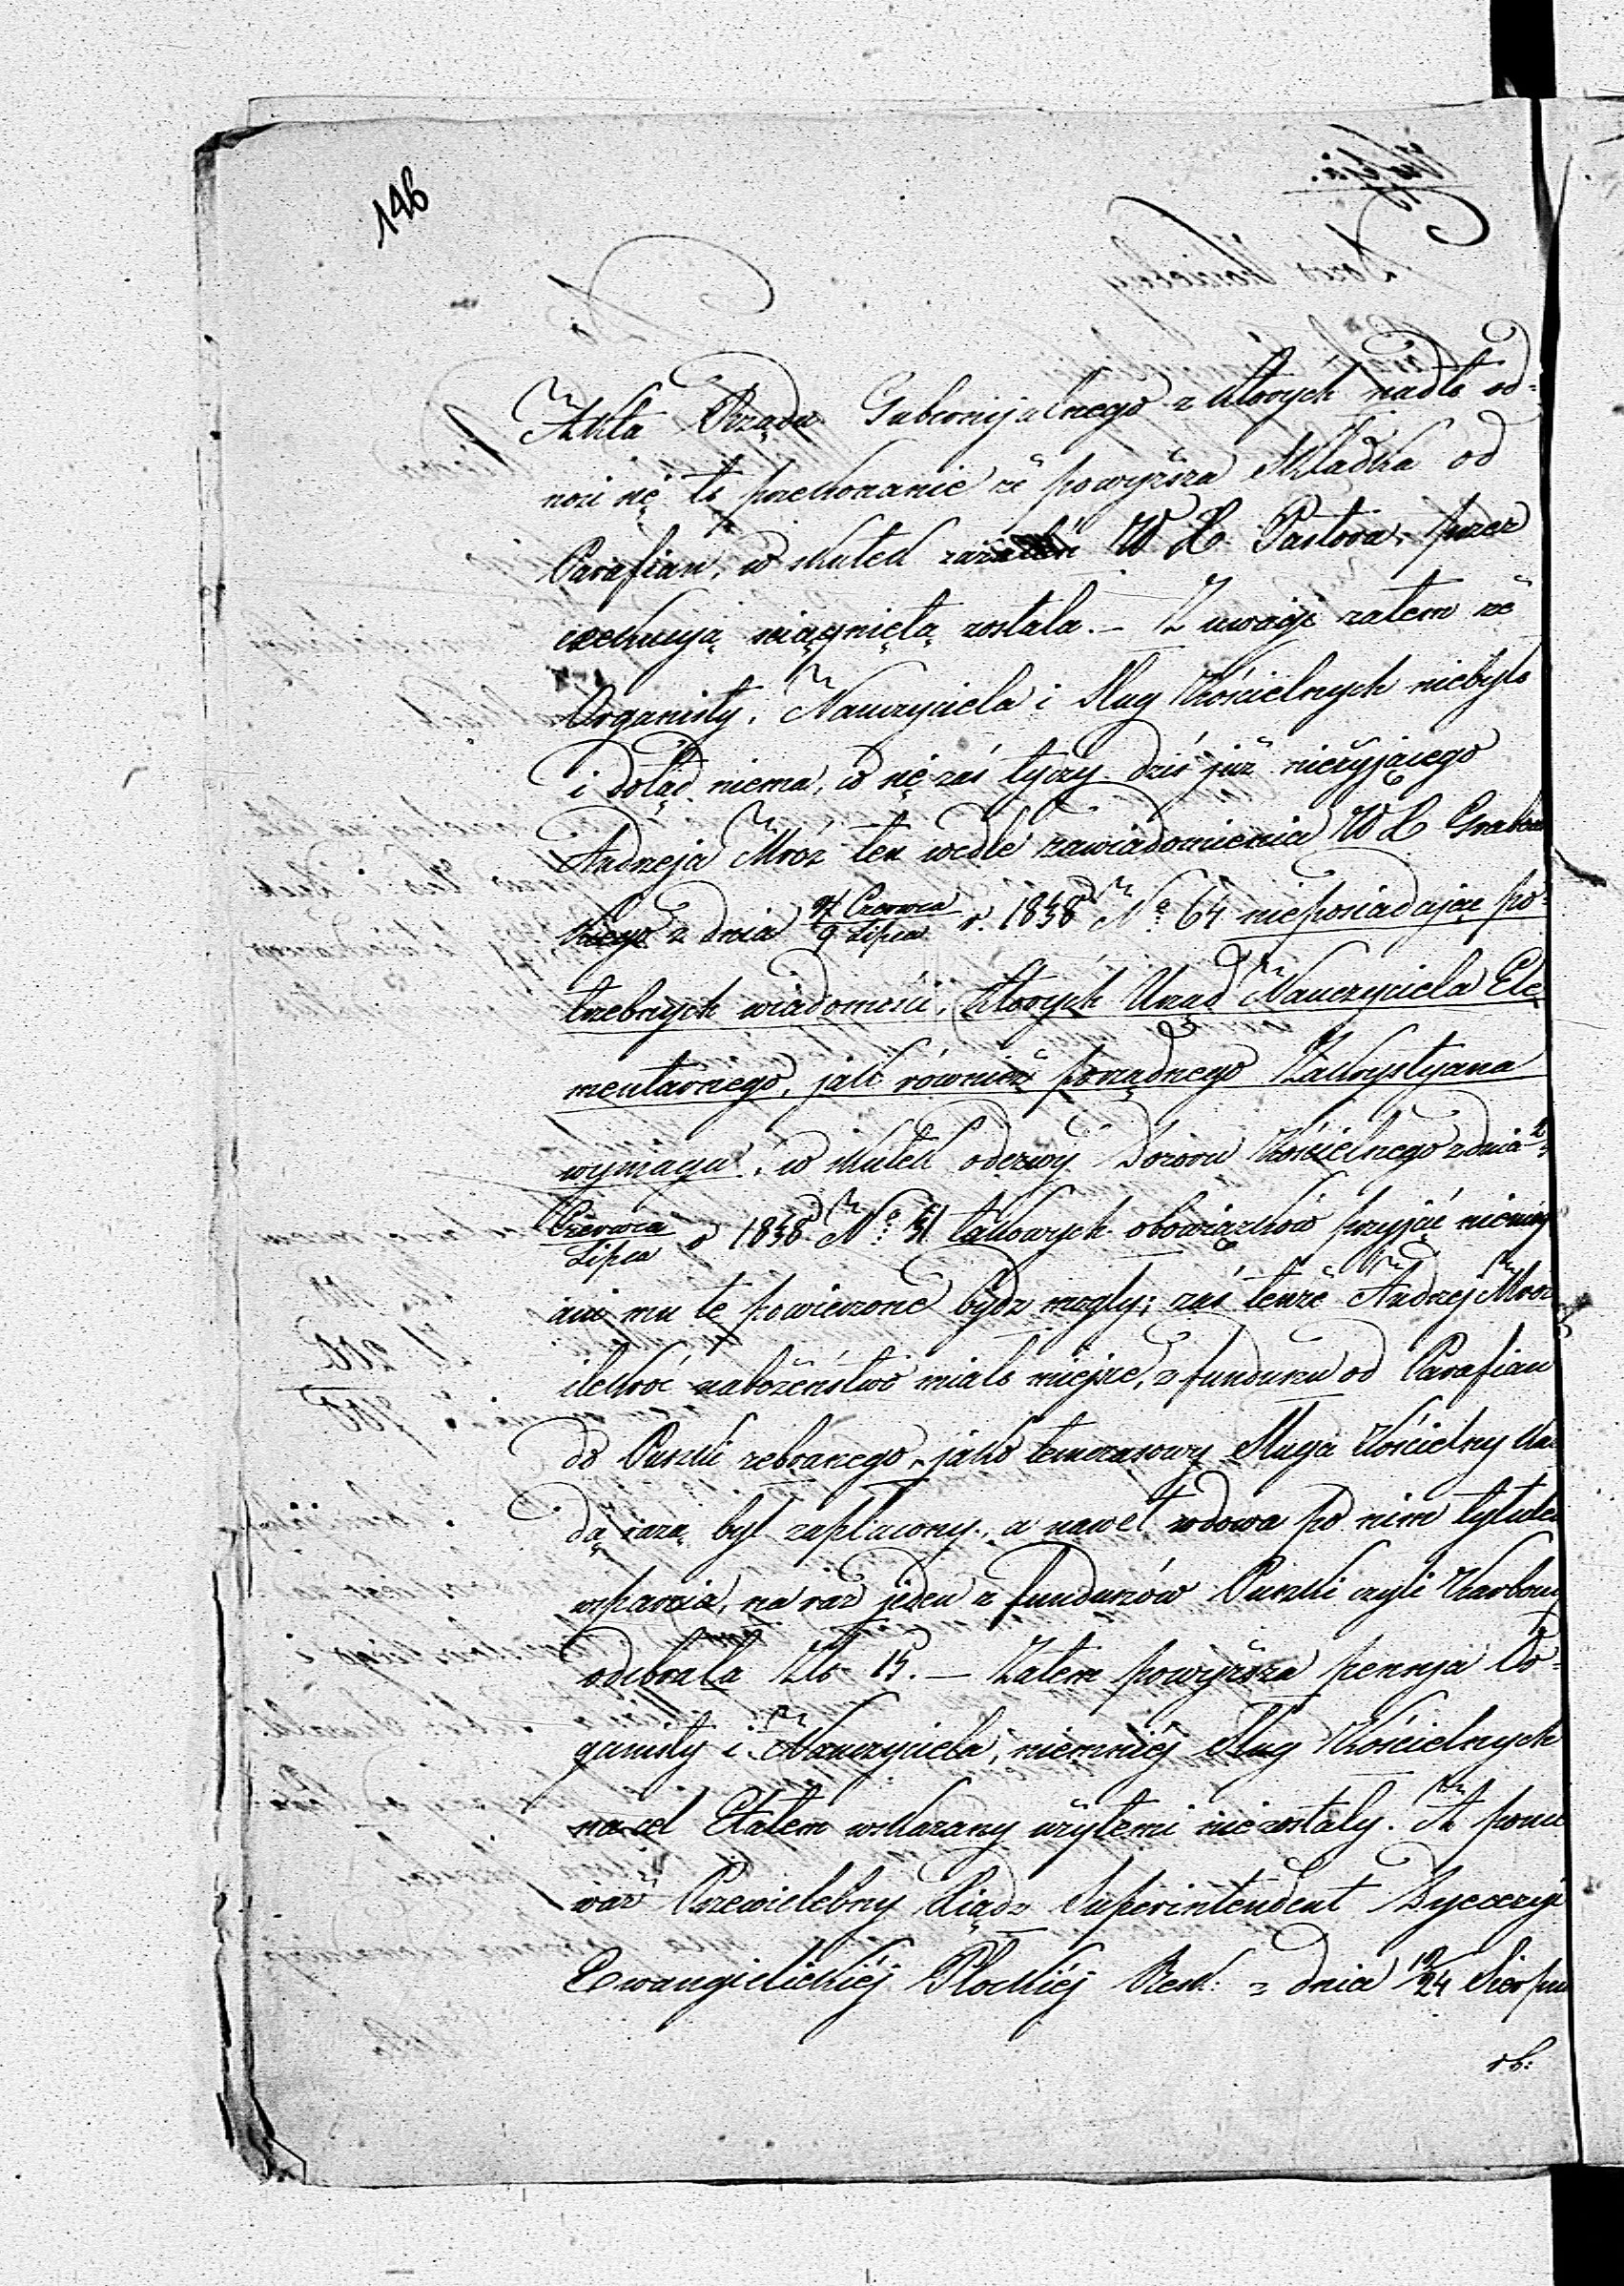 146
Akta Rządu Gubernijalnego z których nadto od=
nosi się to przekonanie że powyższa składka od
Parafian, w skutek zażaleń W X Pastora, przez
exekucyją sciągniętą została. – Z uwagi zatem że
Organisty, Nauczyciela i Sług Kościelnych niebyło
i dotąd niema, co się zaś tyczy dziś już nieżyjącego
Andrzeja Mróz ten wedle zawiadomienia W X Grabow
skiego z dnia Czerwca 9 Lipca r. 1838 No 64 nieposiadając po=
trzebnych wiadomości, których Urząd Nauczyciela Ele
mentarnego, jak również porządnego Zakrystyana
wymaga, w skutek odezwy Dozoru Kościelnego z dnia
Czerwca Lipca r 1838 No 31 takowych obowiązków przyjąć niemógł
ani mu te powierzone bydz mogły; zaś tenże Andrzej Mroz
ilekroć nabożeństwo miało miejsce, z funduszu od Parafian
do Puszki zebranego, jako tymczasowy Sługa Kościelny każ
dą razą był zapłacony, a nawet wdowa po nim tytułem
wsparcia, na raz jeden z funduszów Puszki czyli Karbony
odebrała Złp 15. – Zatem powyższa pensyja Or=
ganisty i Nauczyciela, niemniéj Sług Kościelnych
na cel Etatem wskazany użytemi niezostały. A ponie
waż Przewielebny Xiądz Superintendent Dyecezyi
Ewangielickiéj Płockiéj Resk: z dnia 12/24 Sierpnia
r b: